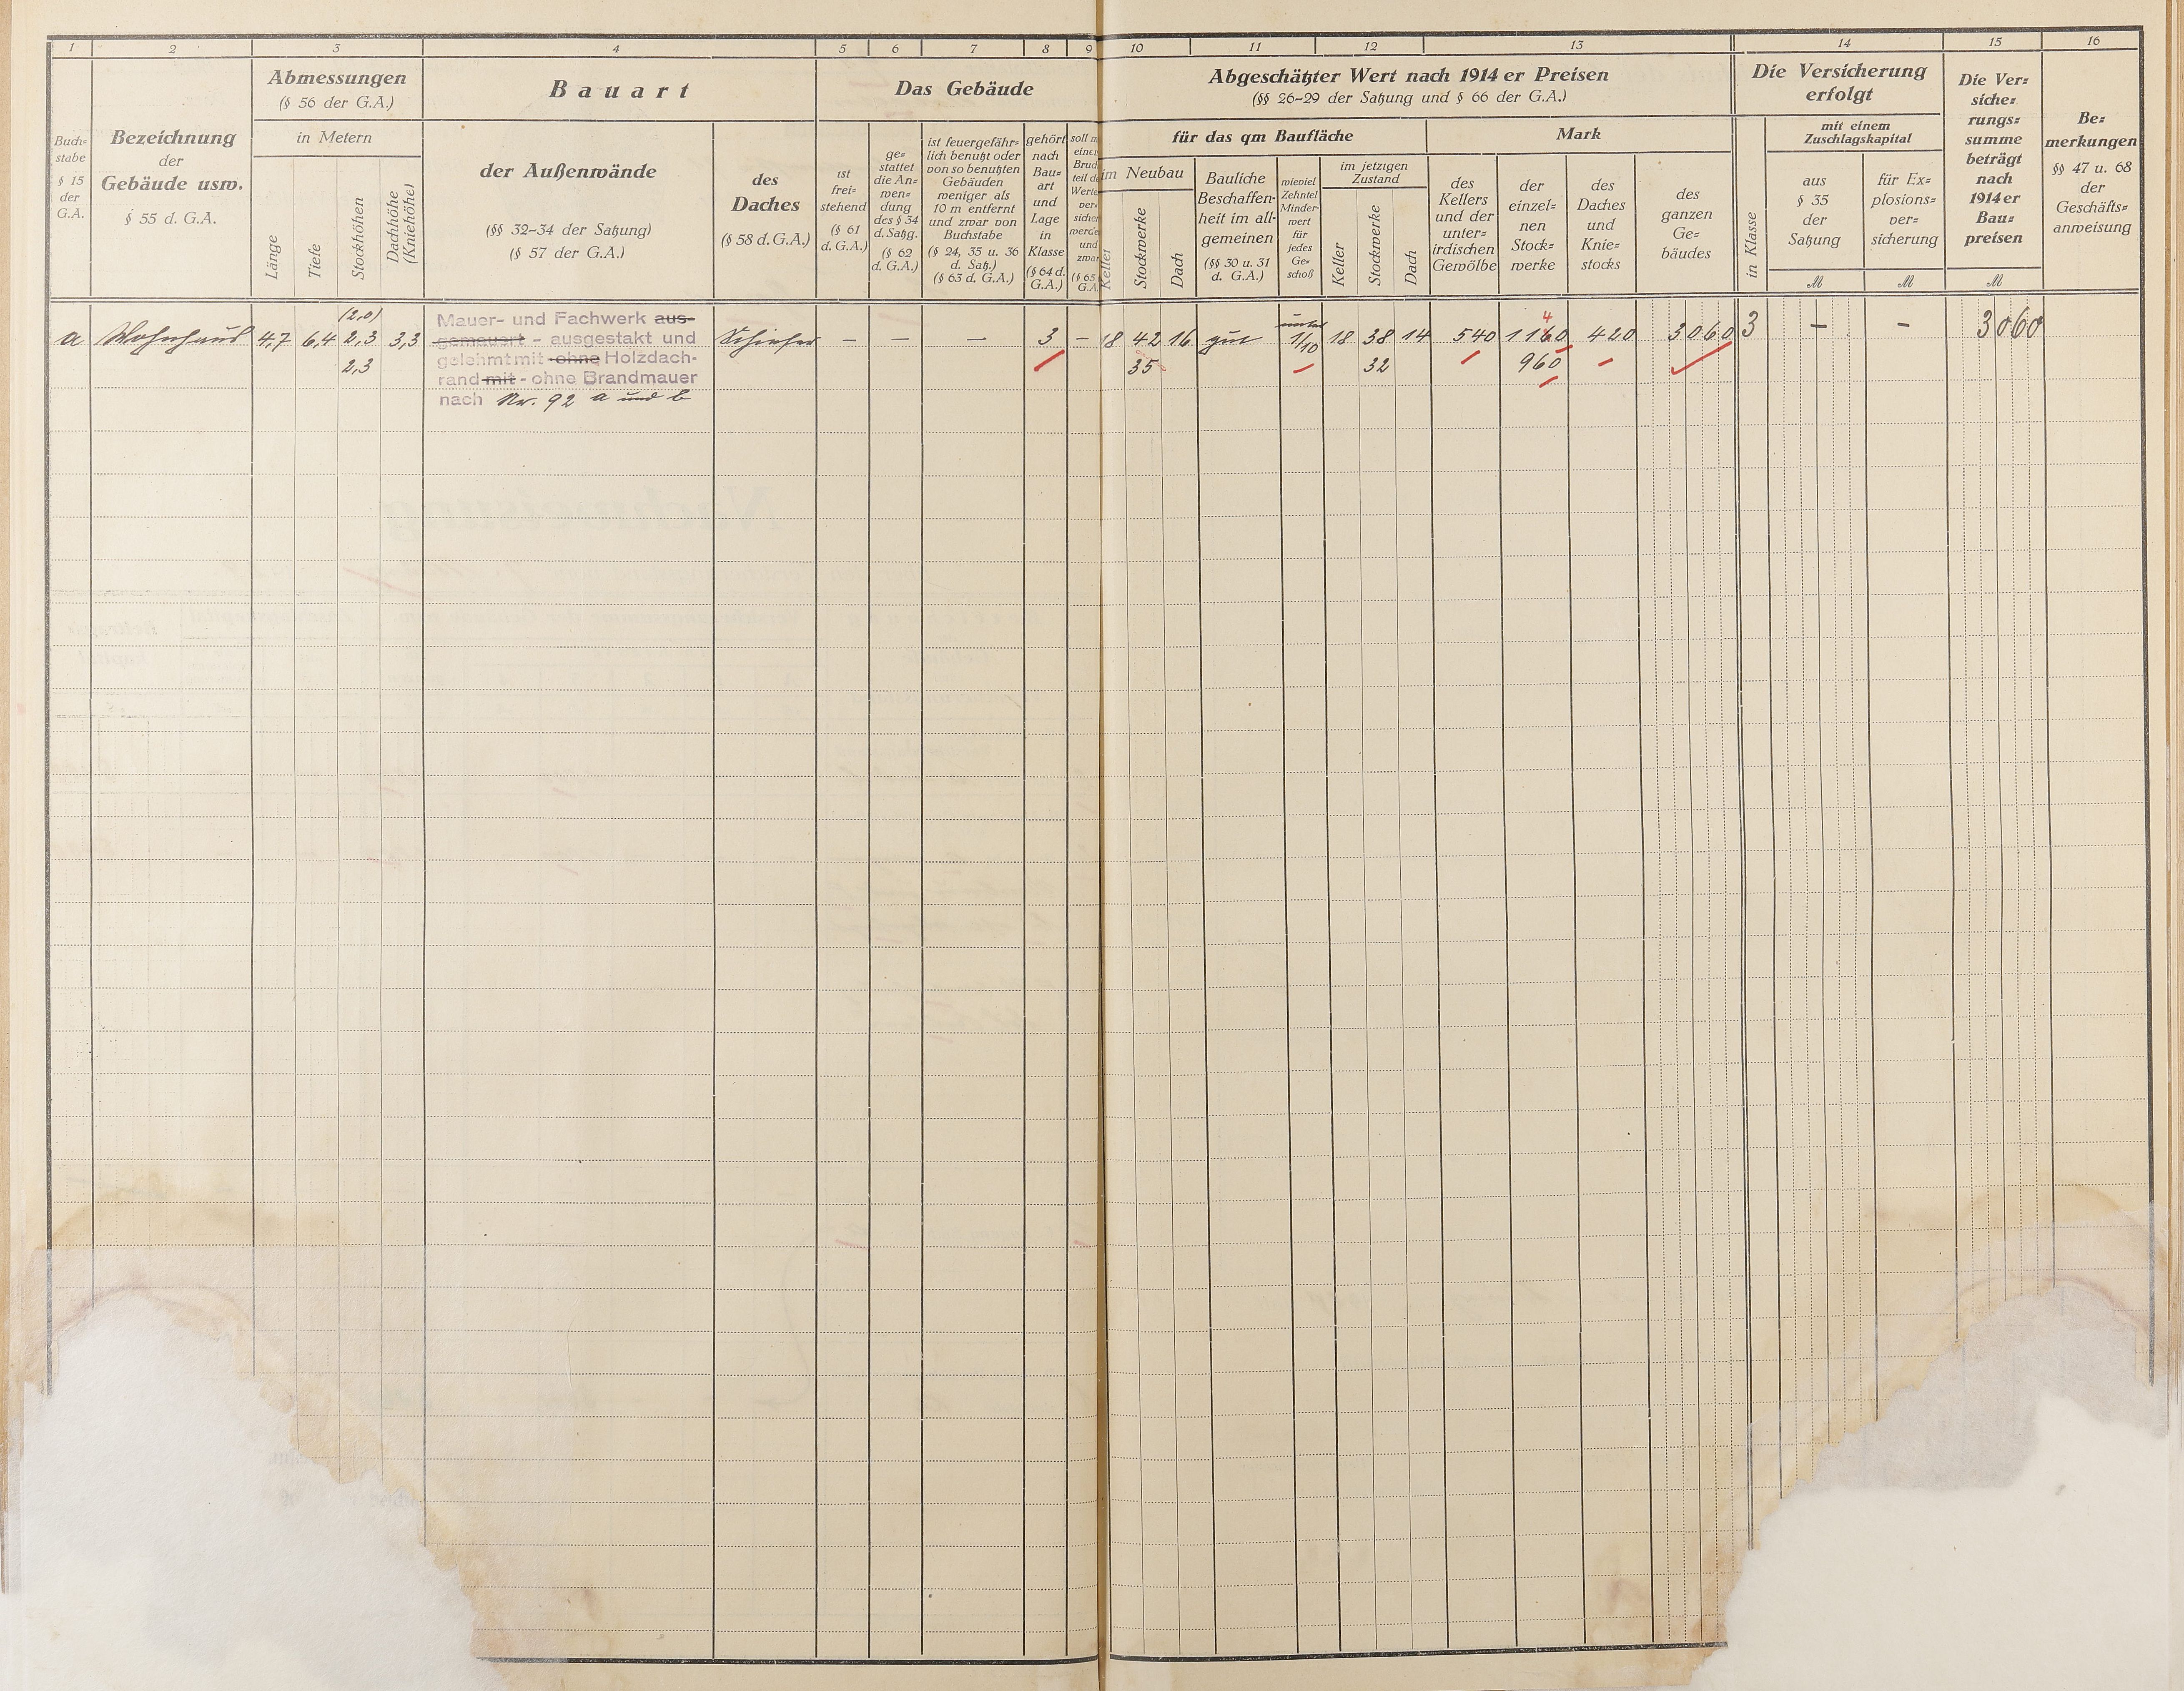 1 2 3 4 5 6 7 8 9 10 11 12 13 14 15 16
Buch=
stabe
§ 15
der
G.A.
Bezeichnung
der
Gebäude usw.
§ 55 d. G.A.
Abmessungen
(§ 56 der G.A.)
in Metern
Länge
Tiefe
Stockhöhen
Dachhöhe
(Kniehöhe)
Bauart
der Außenwände
(§§ 32-34 der Satzung)
(§ 57 der G.A.)
des
Daches
(§ 58 d. G.A.)
Das Gebäude
ist
frei=
stehend
(§ 61
d. G.A.)
ge=
stattet
die An=
wen=
dung
des § 34
d. Satzg.
(§ 62
d. G.A.)
ist feuergefähr=
lich benutzt oder
von so benutzten
Gebäuden
weniger als
10 m entfernt
und zwar von
Buchstabe
(§ 24, 35 u. 36
d. Satz.)
(§ 63 d. G.A.)
gehört
nach
Bau=
art
und
Lage
in
Klasse
(§ 64 d.
G.A.)
soll m
einem
Bruch
teil de
Werte
ver=
sicher
werde
und
zwar
(§ 65
G.A.
Abgeschätzter Wert nach 1914 er Preisen
(§§ 26-29 der Satzung und § 66 der G.A.)
für das qm Baufläche
im Neubau
Keller
Stockwerke
Dach
Bauliche
Beschaffen=
heit im all=
gemeinen
(§§ 30 u. 31
d. G.A.)
wieviel
Zehntel
Minder=
wert
für
jedes
Ge=
schoß
im jetzigen
Zustand
Keller
Stockwerke
Dach
Mark
des
Kellers
und der
unter=
irdischen
Gewölbe
der
einzel=
nen
Stock=
werke
des
Daches
und
Knie=
stocks
des
ganzen
Ge=
bäudes
Die Versicherung
erfolgt
in Klasse
mit einem
Zuschlagskapital
aus
§ 35
der
Satzung
ℳ
für Ex=
plosions=
ver=
sicherung
ℳ
Die Ver=
siche=
rungs=
summe
beträgt
nach
1914 er
Bau=
preisen
ℳ
Be=
merkungen
§§ 47 u. 68
der
Geschäfts=
anweisung
(2,0)
a Wohnhaus 4,7 6,4 2,3 3,3
2,3
Mauer- und Fachwerk aus-
gemauert - ausgestakt und
gelehmt mit - ohne Holzdach-
rand mit - ohne Brandmauer
nach Nr. 92 a und b
Schiefer — — — 3 — 18 42 16 gut unter 1/10 18 38 14 540 1160 420 3060 3 — — 3060
4
35 32 960